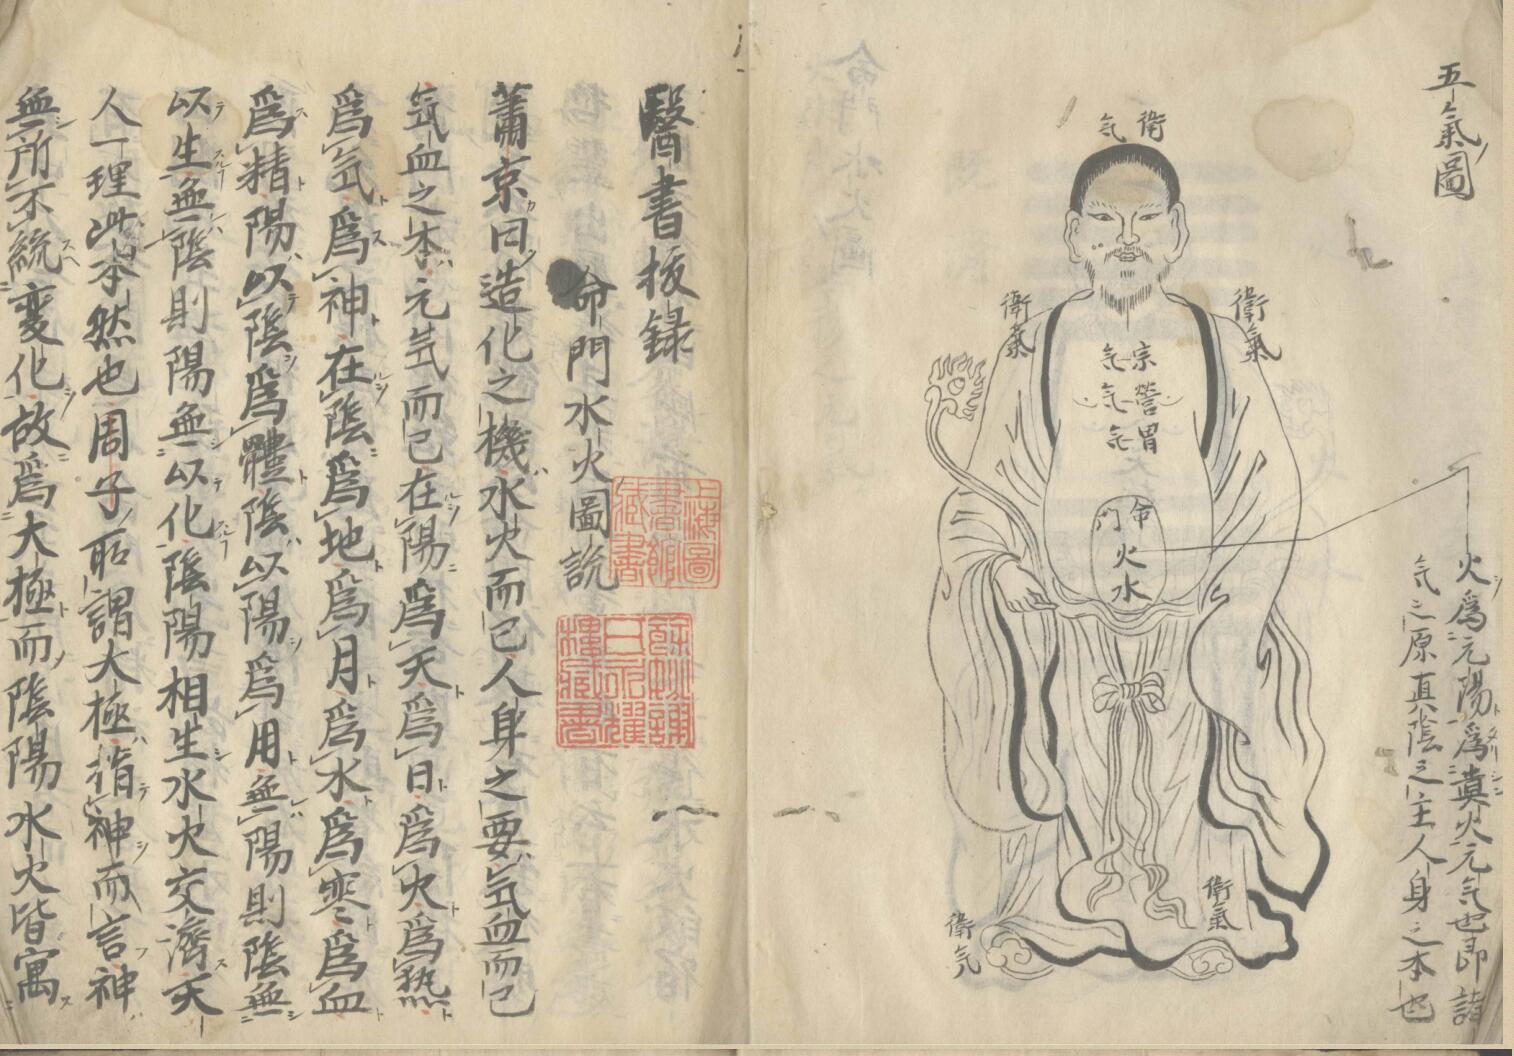 五氣圖
衛気
衛氣
衛氣
宗気
營気
胃気
命門
火
水
衛氣
衛気
火爲元陽爲真火元気也即諸
気之原真陰之主人身之本也
醫書抜録
命門水火圖説
上海圖
書館
藏書
餘姚謝
氏永耀
樓藏書
蕭京曰造化之機水火而已人身之要気血而已
気血之本元気而已在陽爲天爲日爲火爲熱
爲気爲神在陰爲地爲月爲水爲寒爲血
爲精陽以陰爲體陰以陽爲用無陽則陰無
以生無陰則陽無以化陰陽相生水火交濟天
人一理此本然也周子所謂大極指神而言神
無所不統變化故爲大極而陰陽水火皆寓